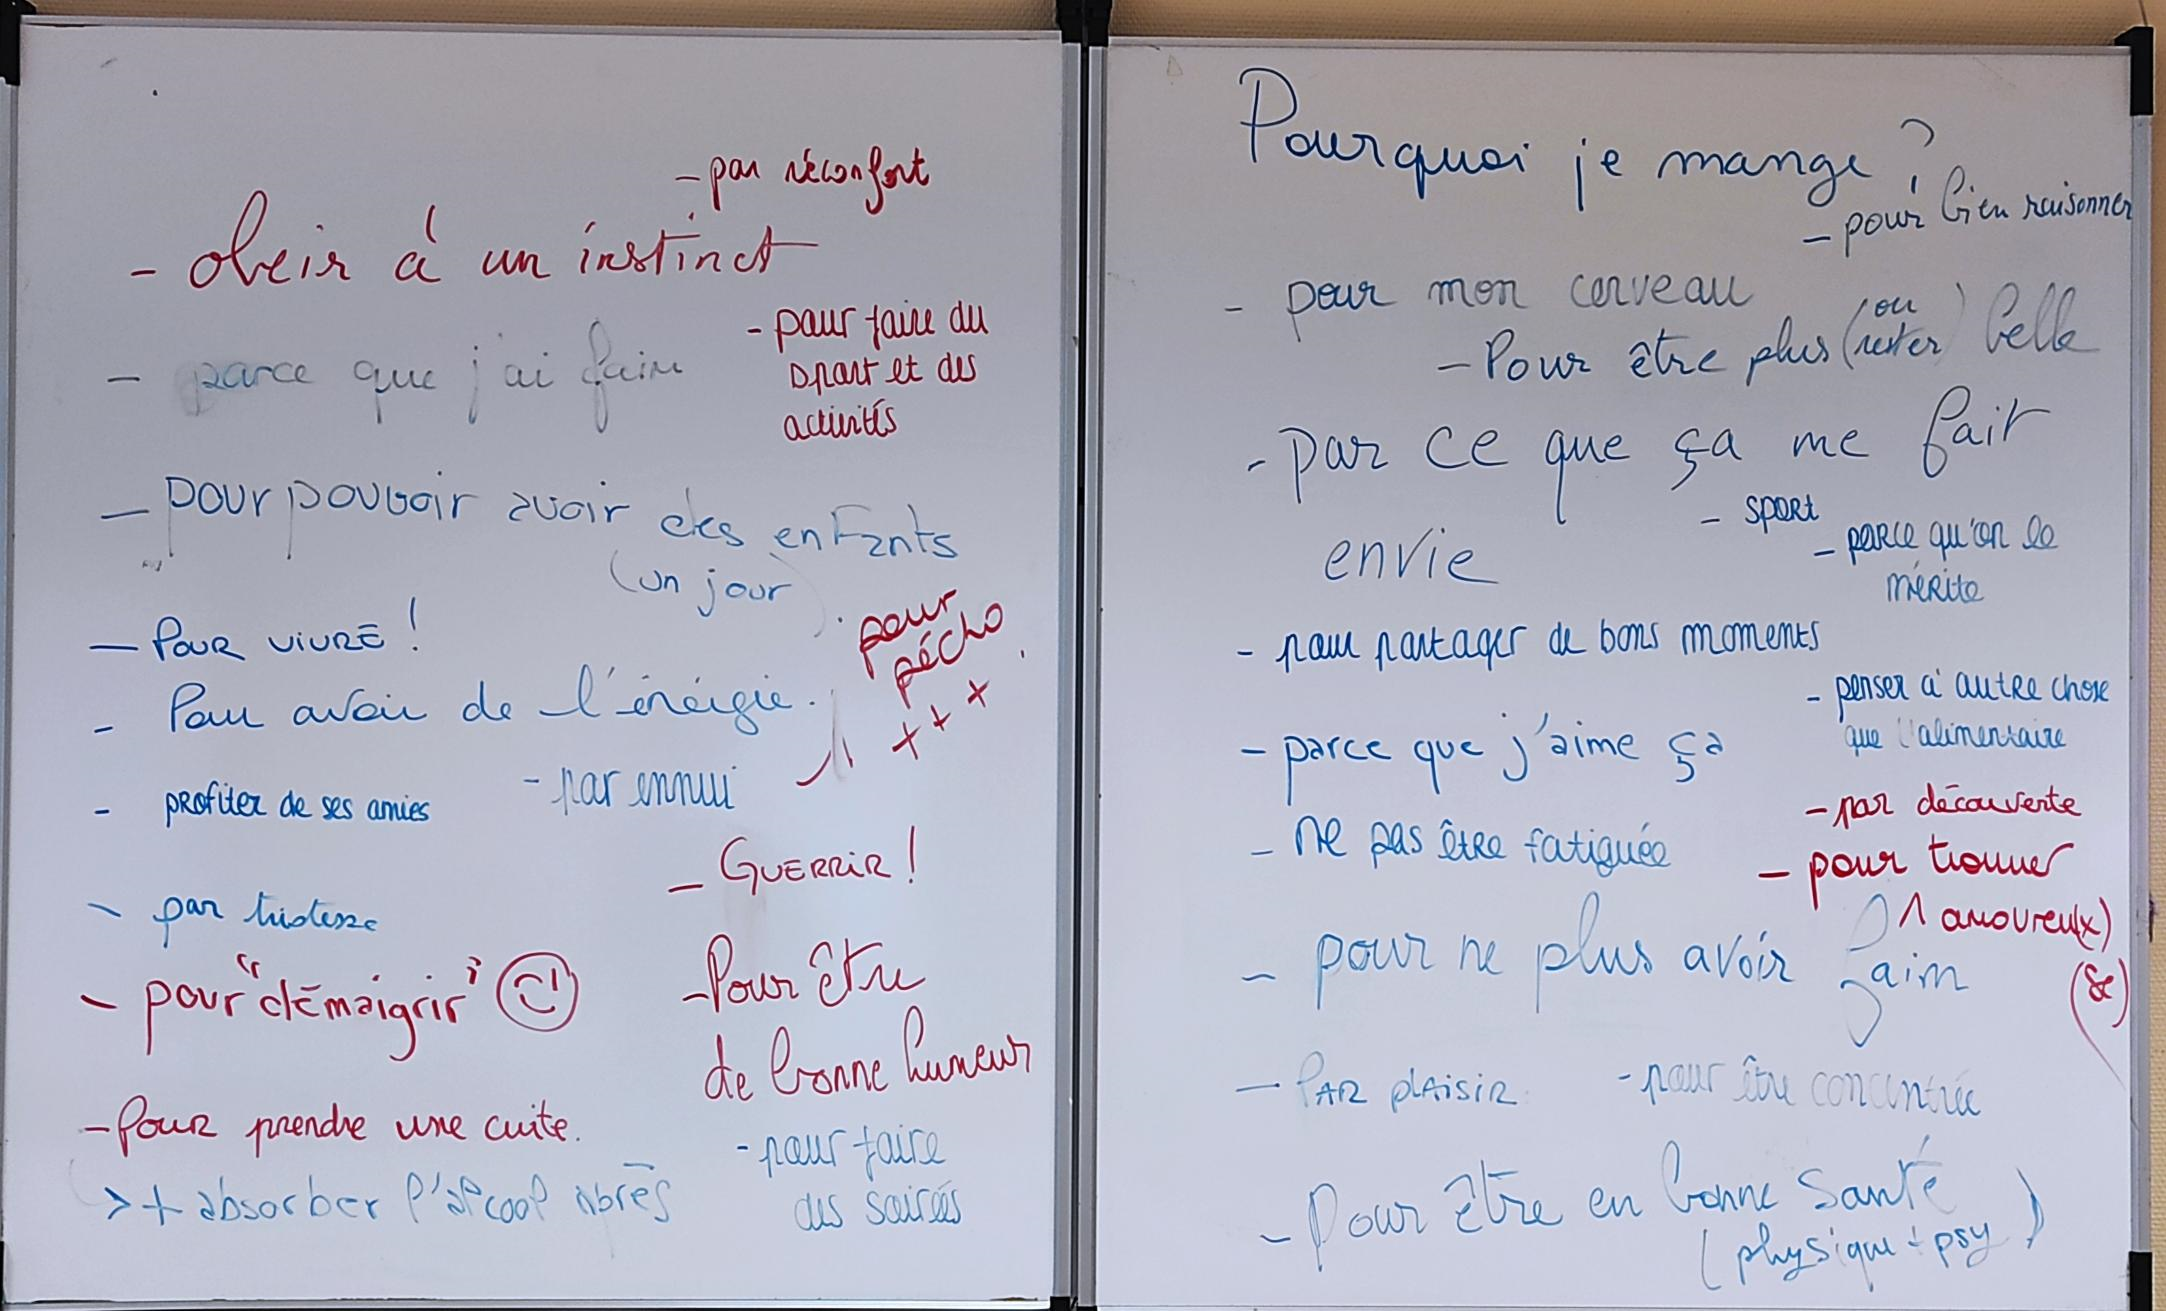 - par réconfort
- obeir à un instinct
- parce que j'ai faim
- pour faire du
sport et des
activités
- pour pouvoir avoir des enfants
(un jour)
- Pour vivre !
pour
pécho
+ + +
- Pour avoir de l'énérgie.
- profiter de ses amies
- par ennui
- Guerrir !
- par tristesse
- pour "démaigrir"
- Pour être
de bonne humeur
- Pour prendre une cuite.
> + absorber l'alcool après
- pour faire
des soirées
Pourquoi je mange ?
- pour bien raisonner
- pour mon cerveau
- Pour être plus (ou rester) belle
- par ce que ça me fait
envie
- sport
- parce qu'on le
mérite
- pour partager de bons moments
- penser à autre chose
que l'alimentaire
- parce que j'aime ça
- par découverte
- ne pas être fatiguée
- pour trouver
1 amoureu(x)
(se)
- pour ne plus avoir faim
- Par plaisir
- pour être concentrée
- Pour être en bonne santé
(physique + psy)